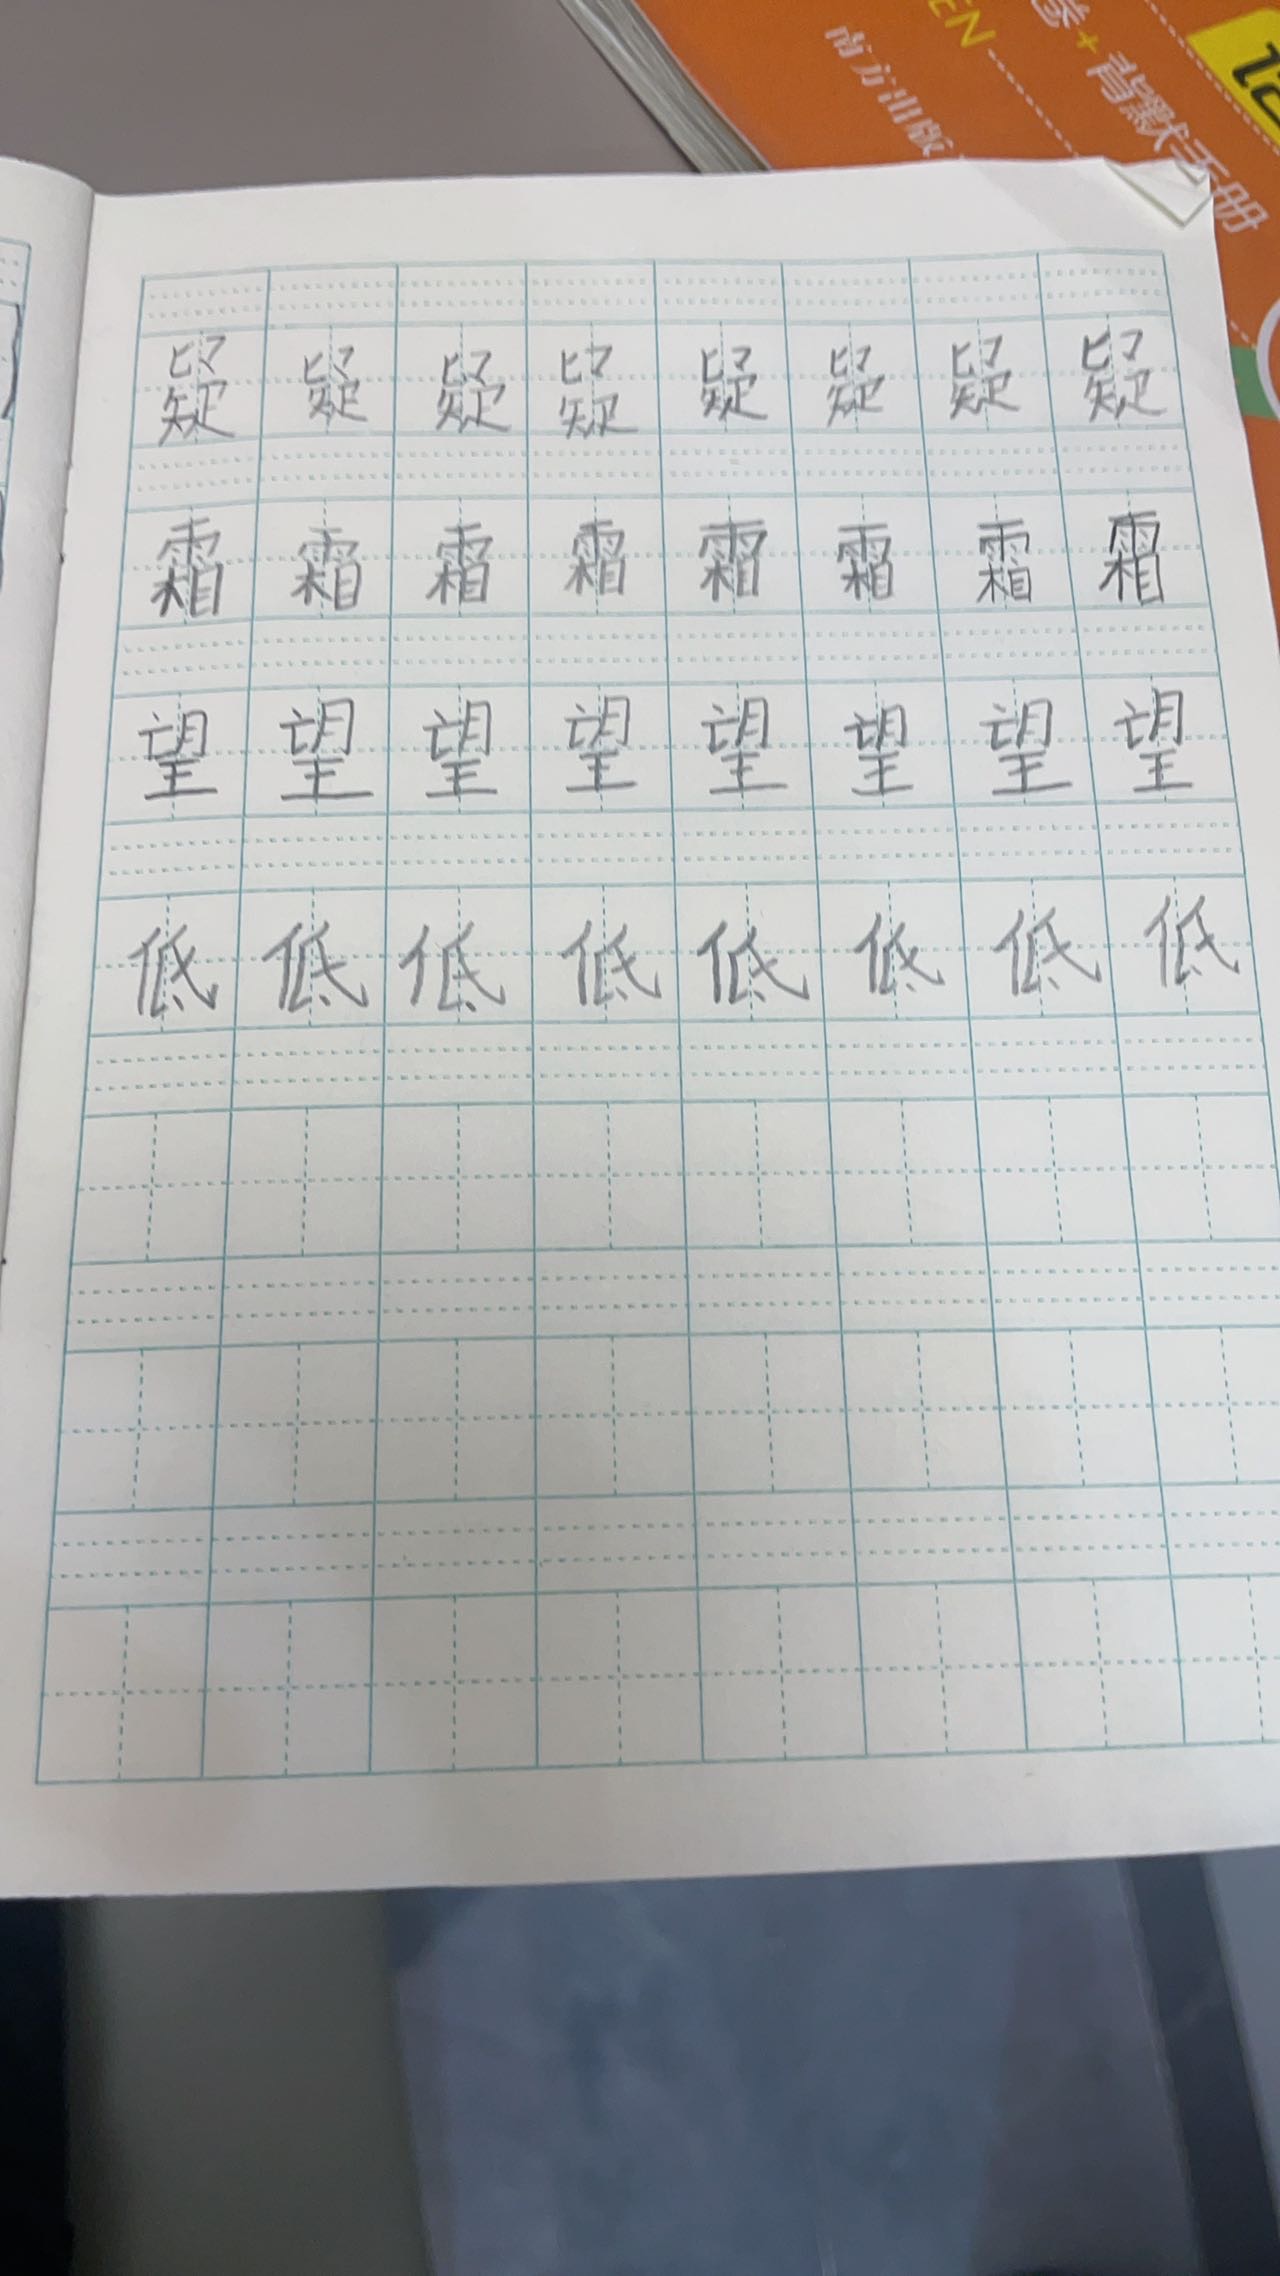 卷+背默手册
EN
南方出版
疑疑疑疑疑疑疑疑
霜霜霜霜霜霜霜霜
望望望望望望望望
低低低低低低低低